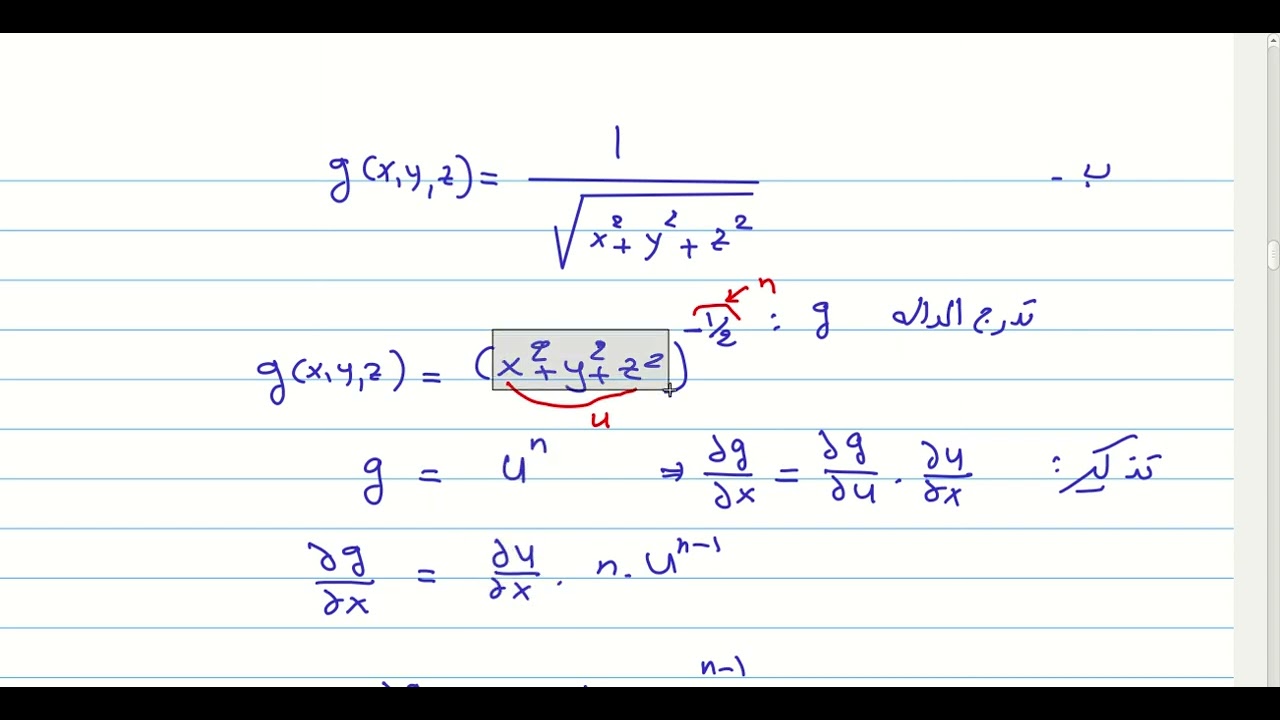 ب - g(x,y,z) = 1 / √(x² + y² + z²)
تدرج الداله g :
g(x,y,z) = (x² + y² + z²)^(-1/2) n
u
تذكير : g = u^n ⇒ ∂g/∂x = ∂g/∂u . ∂u/∂x
∂g/∂x = ∂u/∂x . n . u^(n-1)
n-1